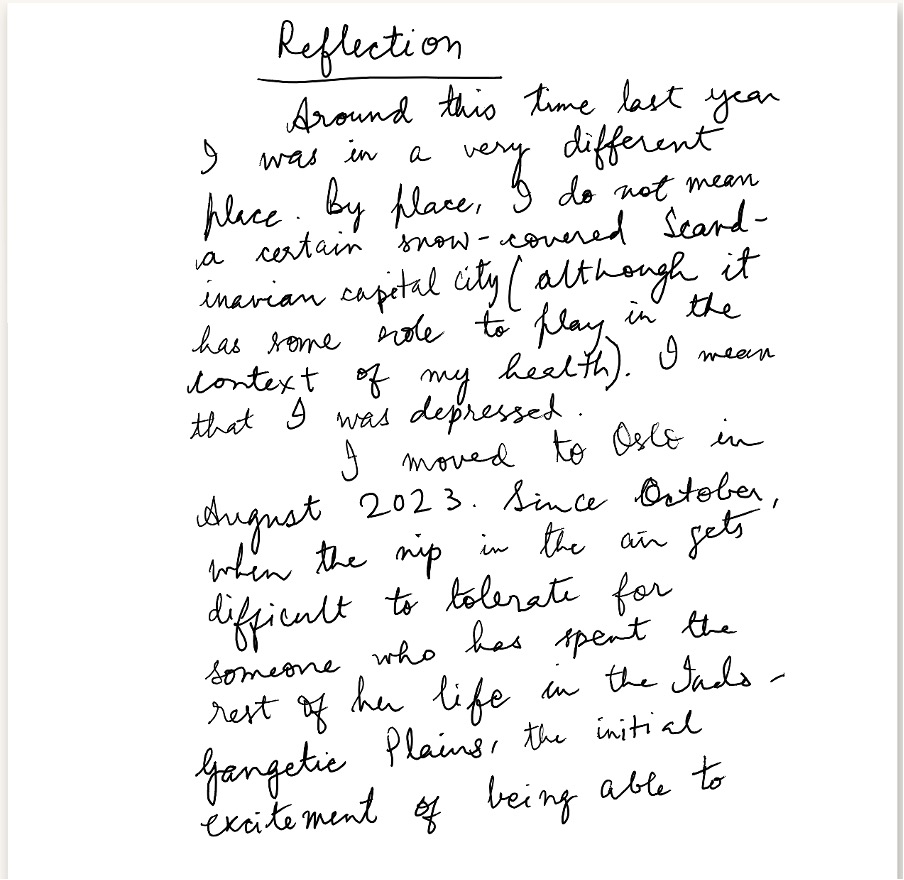 Reflection
Around this time last year
I was in a very different
place. By place, I do not mean
a certain snow-covered Scand-
inavian capital city (although it
has some role to play in the
context of my health). I mean
that I was depressed.
I moved to Oslo in
August 2023. Since October,
when the nip in the air gets
difficult to tolerate for
someone who has spent the
rest of her life in the Indo-
Gangetic Plains, the initial
excitement of being able to